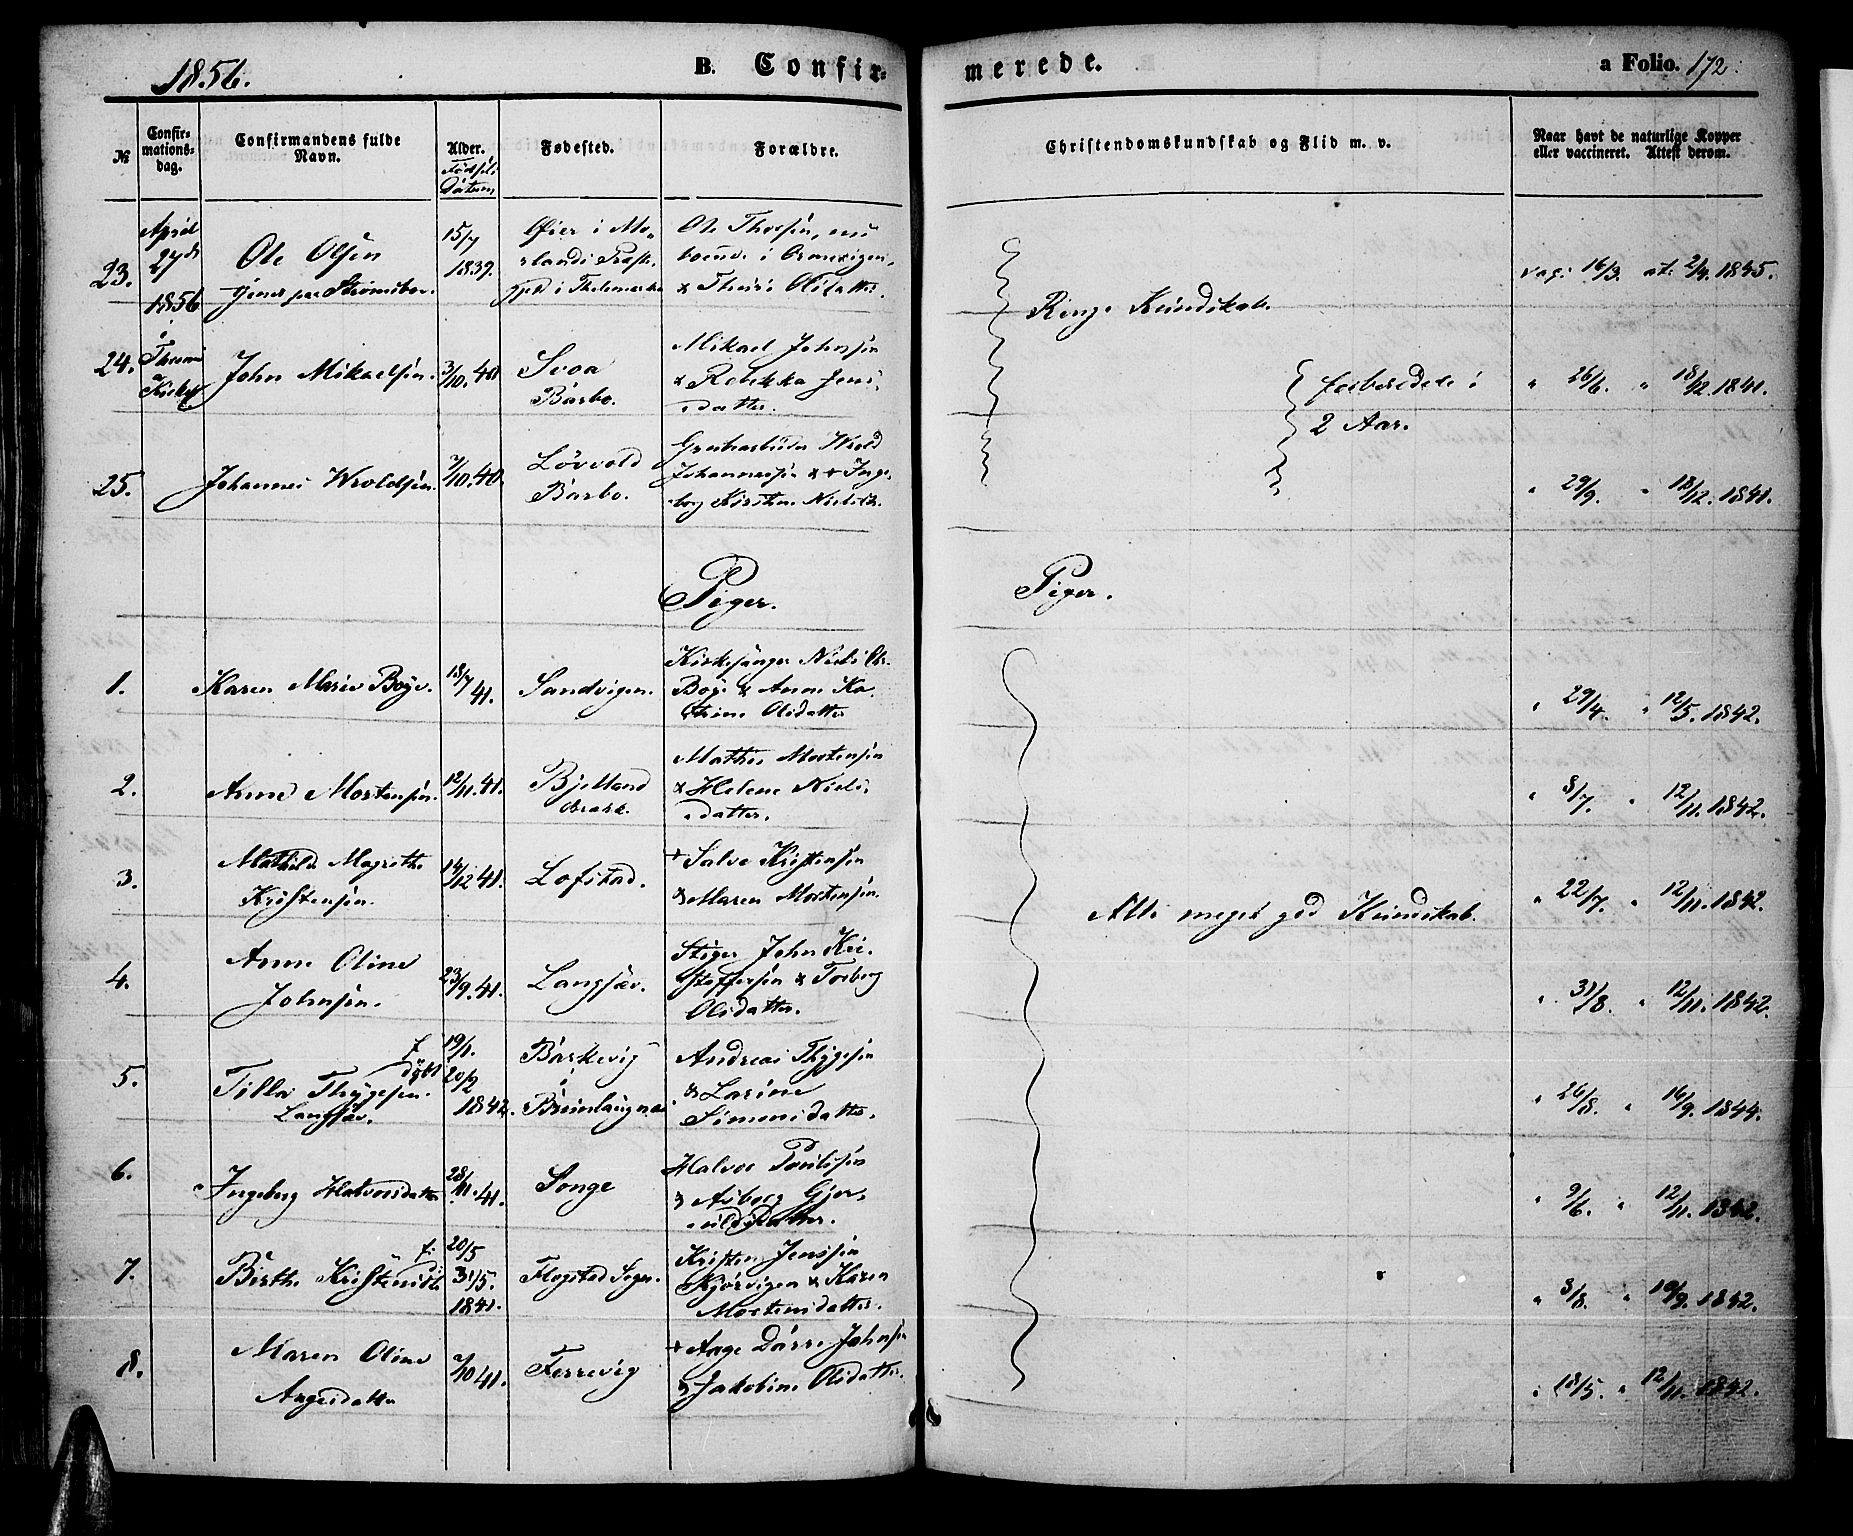 1856.
B. Confir=
merede.
a Folio. 172.
№
Confir=
mations=
dag.
Confirmandens fulde
Navn.
Alder.
Fødsels
Datum
Fødested.
Forældre.
Christendomskundskab og Flid m. v.
Naar havt de naturlige Kopper
eller vaccineret. Attest derom.
April
27de
1856
i
Kirke
23.
Ole Olsen
15/7
1839.
Øier i Mo-
rlands Præst.
i Thelemarken
Ole Thorsen, nu
boende i
& Thuri Olsdatter.
Ringe Kundskab.
vac: 16/3. at: 2/4. 1845.
24.
John Mikaelsen.
3/10. 40.
Svoa
Barbo.
Mikael Johnsen
& Rebekka Jens-
datter.
forberedede i
2 Aar.
" 26/6. " 18/12. 1841.
25.
Johannes Wroldsen.
7/10. 40.
Løvvold
Barbo.
Wrold
Johannesen & + Inge-
borg Kirstine Nielsdtr.
" 29/9. " 18/12. 1841.
Piger.
Piger.
1.
Karen Marie Boye.
18/7 41.
Sandvigen.
Kirkesanger Niels Chr.
Boye & Anne Ka-
trine Olsdatter
" 29/4. " 12/5. 1842.
2.
Anne Mortensen.
12/11. 41.
Bjelland
Mathis Mortensen
& Helene Niels-
datter.
" 8/7. " 12/11. 1842.
3.
Mathilde Magrethe
Kristensen.
14/12 41.
Lofstad.
+ Salve Kristensen
& Maren Mortensen.
Alle meget god Kundskab.
" 22/7. " 12/11. 1842.
4.
Anne Oline
Johnsen.
23/9. 41.
Langsæv.
Stiger John Kri-
stoffersen & Torborg
Olsdatter.
" 31/8. " 12/11. 1842.
5.
Tilla Thygesen.
Langsæv.
f.
døbt
19/1.
20/2
1842.
Barkevig
i
Brunlaugnæs
Andreas Thygesen
& Larine
Simonsdatter.
" 26/8. " 16/9. 1844.
6.
Ingeborg Halvorsdatter
28/11. 41.
Songe
Halvor Poulsen
& Asborg Gjer-
uldsdatter.
" 9/6. " 12/11. 1842.
7.
Birthe Kristensdtr
f.
20/5
31/5.
1841.
Flogstad
Kristen Jenssen
Kjørvigen & Karen
Mortensdatter.
" 3/8. " 10/9. 1842.
8.
Maren Oline
Aagesdatter
2/10 41.
Ferrevig
+ Aage Dørre Johnsen
& Jakobine Olsdatter.
" 18/5. " 12/11. 1842.